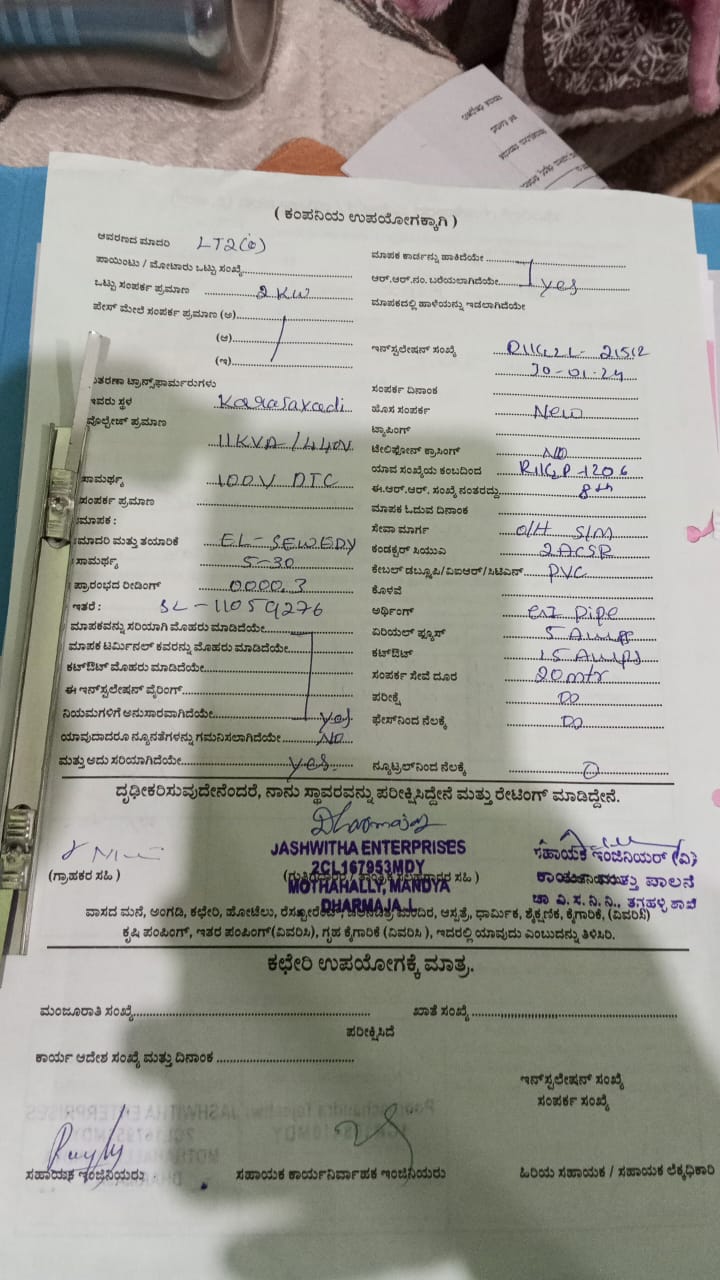 ( ಕಂಪನಿಯ ಉಪಯೋಗಕ್ಕಾಗಿ )
ಆವರಣದ ಮಾದರಿ LT2
ಮಾಪಕ ಕಾರ್ಡನ್ನು ಹಾಕಿದೆಯೇ
ಪಾಯಿಂಟು / ಮೋಟಾರು ಒಟ್ಟು ಸಂಖ್ಯೆ
ಆರ್.ಆರ್.ನಂ. ಬರೆಯಲಾಗಿದೆಯೇ yes
ಒಟ್ಟು ಸಂಪರ್ಕ ಪ್ರಮಾಣ 2 KW
ಮಾಪಕದಲ್ಲಿ ಹಾಳೆಯನ್ನು ಇಡಲಾಗಿದೆಯೇ
ಪೇಸ್ ಮೇಲೆ ಸಂಪರ್ಕ ಪ್ರಮಾಣ (ಅ)
(ಆ)
(ಇ)
ಇನ್‌ಸ್ಟಲೇಷನ್ ಸಂಖ್ಯೆ
ಸಂಪರ್ಕ ದಿನಾಂಕ
ಇವರು ಸ್ಥಳ Karasavadi
ಹೊಸ ಸಂಪರ್ಕ New
ವೊಲ್ಟೇಜ್ ಪ್ರಮಾಣ 11KVA/440V
ಟ್ಯಾಪಿಂಗ್
ಟೆಲಿಫೋನ್ ಕ್ರಾಸಿಂಗ್ NO
ಸಾಮರ್ಥ್ಯ
ಯಾವ ಸಂಖ್ಯೆಯ ಕಂಬದಿಂದ
ಸಂಪರ್ಕ ಪ್ರಮಾಣ
ಈ.ಆರ್.ಆರ್. ಸಂಖ್ಯೆ ನಂತರದ್ದು 8th
ಮಾಪಕ :
ಮಾಪಕ ಓದುವ ದಿನಾಂಕ
ಮಾದರಿ ಮತ್ತು ತಯಾರಿಕೆ EL-SEWEDY
ಸೇವಾ ಮಾರ್ಗ O/H
ಸಾಮರ್ಥ್ಯ 5-30
ಕಂಡಕ್ಟರ್ ಸಿಯುಎ 2ACSR
ಪ್ರಾರಂಭದ ರೀಡಿಂಗ್ 0000.3
ಕೇಬಲ್ ಡಬ್ಲೂಪಿ/ವಿಐಆರ್/ಸಿಟಿಎಸ್ PVC
ಇತರೆ : SL-11059276
ಕೊಳವೆ
ಮಾಪಕವನ್ನು ಸರಿಯಾಗಿ ಮೊಹರು ಮಾಡಿದೆಯೇ
ಅರ್ಥಿಂಗ್ pipe
ಮಾಪಕ ಟರ್ಮಿನಲ್ ಕವರನ್ನು ಮೊಹರು ಮಾಡಿದೆಯೇ
ಏರಿಯಲ್ ಫ್ಯೂಸ್ 5 Amps
ಕಟ್‌ಔಟ್ ಮೊಹರು ಮಾಡಿದೆಯೇ
ಕಟ್‌ಔಟ್ 15 Amps
ಈ ಇನ್‌ಸ್ಟಲೇಷನ್ ವೈರಿಂಗ್
ಸಂಪರ್ಕ ಸೇವೆ ದೂರ 20mtr
ಪರೀಕ್ಷೆ
ನಿಯಮಗಳಿಗೆ ಅನುಸಾರವಾಗಿದೆಯೇ yes
ಫೇಸ್‌ನಿಂದ ನೆಲಕ್ಕೆ
ಯಾವುದಾದರೂ ನ್ಯೂನತೆಗಳನ್ನು ಗಮನಿಸಲಾಗಿದೆಯೇ NO
ಮತ್ತು ಅದು ಸರಿಯಾಗಿದೆಯೇ yes
ನ್ಯೂಟ್ರಲ್‌ನಿಂದ ನೆಲಕ್ಕೆ 0
ದೃಢೀಕರಿಸುವುದೇನೆಂದರೆ, ನಾನು ಸ್ಥಾವರವನ್ನು ಪರೀಕ್ಷಿಸಿದ್ದೇನೆ ಮತ್ತು ರೇಟಿಂಗ್ ಮಾಡಿದ್ದೇನೆ.
JASHWITHA ENTERPRISES
2CL167953MDY
MOTHAHALLY, MANDYA
DHARMAJA. L
(ಗ್ರಾಹಕರ ಸಹಿ )
ಸಹಾಯಕ ಇಂಜಿನಿಯರ್ (ವಿ)
ಚಾ.ವಿ.ಸ.ನಿ.ನಿ., ತಗ್ಗಹಳ್ಳಿ ಶಾಖೆ
ವಾಸದ ಮನೆ, ಅಂಗಡಿ, ಕಛೇರಿ, ಹೋಟೆಲು, ಮಂದಿರ, ಆಸ್ಪತ್ರೆ, ಧಾರ್ಮಿಕ, ಶೈಕ್ಷಣಿಕ, ಕೈಗಾರಿಕೆ, (ವಿವರಿಸಿ)
ಕೃಷಿ ಪಂಪಿಂಗ್, ಇತರ ಪಂಪಿಂಗ್(ವಿವರಿಸಿ), ಗೃಹ ಕೈಗಾರಿಕೆ (ವಿವರಿಸಿ ), ಇದರಲ್ಲಿ ಯಾವುದು ಎಂಬುದನ್ನು ತಿಳಿಸಿರಿ.
ಕಛೇರಿ ಉಪಯೋಗಕ್ಕೆ ಮಾತ್ರ.
ಮಂಜೂರಾತಿ ಸಂಖ್ಯೆ
ಖಾತೆ ಸಂಖ್ಯೆ
ಪರೀಕ್ಷಿಸಿದೆ
ಕಾರ್ಯ ಆದೇಶ ಸಂಖ್ಯೆ ಮತ್ತು ದಿನಾಂಕ
ಇನ್‌ಸ್ಟಲೇಷನ್ ಸಂಖ್ಯೆ
ಸಂಪರ್ಕ ಸಂಖ್ಯೆ
ಸಹಾಯಕ ಇಂಜಿನಿಯರು
ಸಹಾಯಕ ಕಾರ್ಯನಿರ್ವಾಹಕ ಇಂಜಿನಿಯರು
ಹಿರಿಯ ಸಹಾಯಕ / ಸಹಾಯಕ ಲೆಕ್ಕಧಿಕಾರಿ